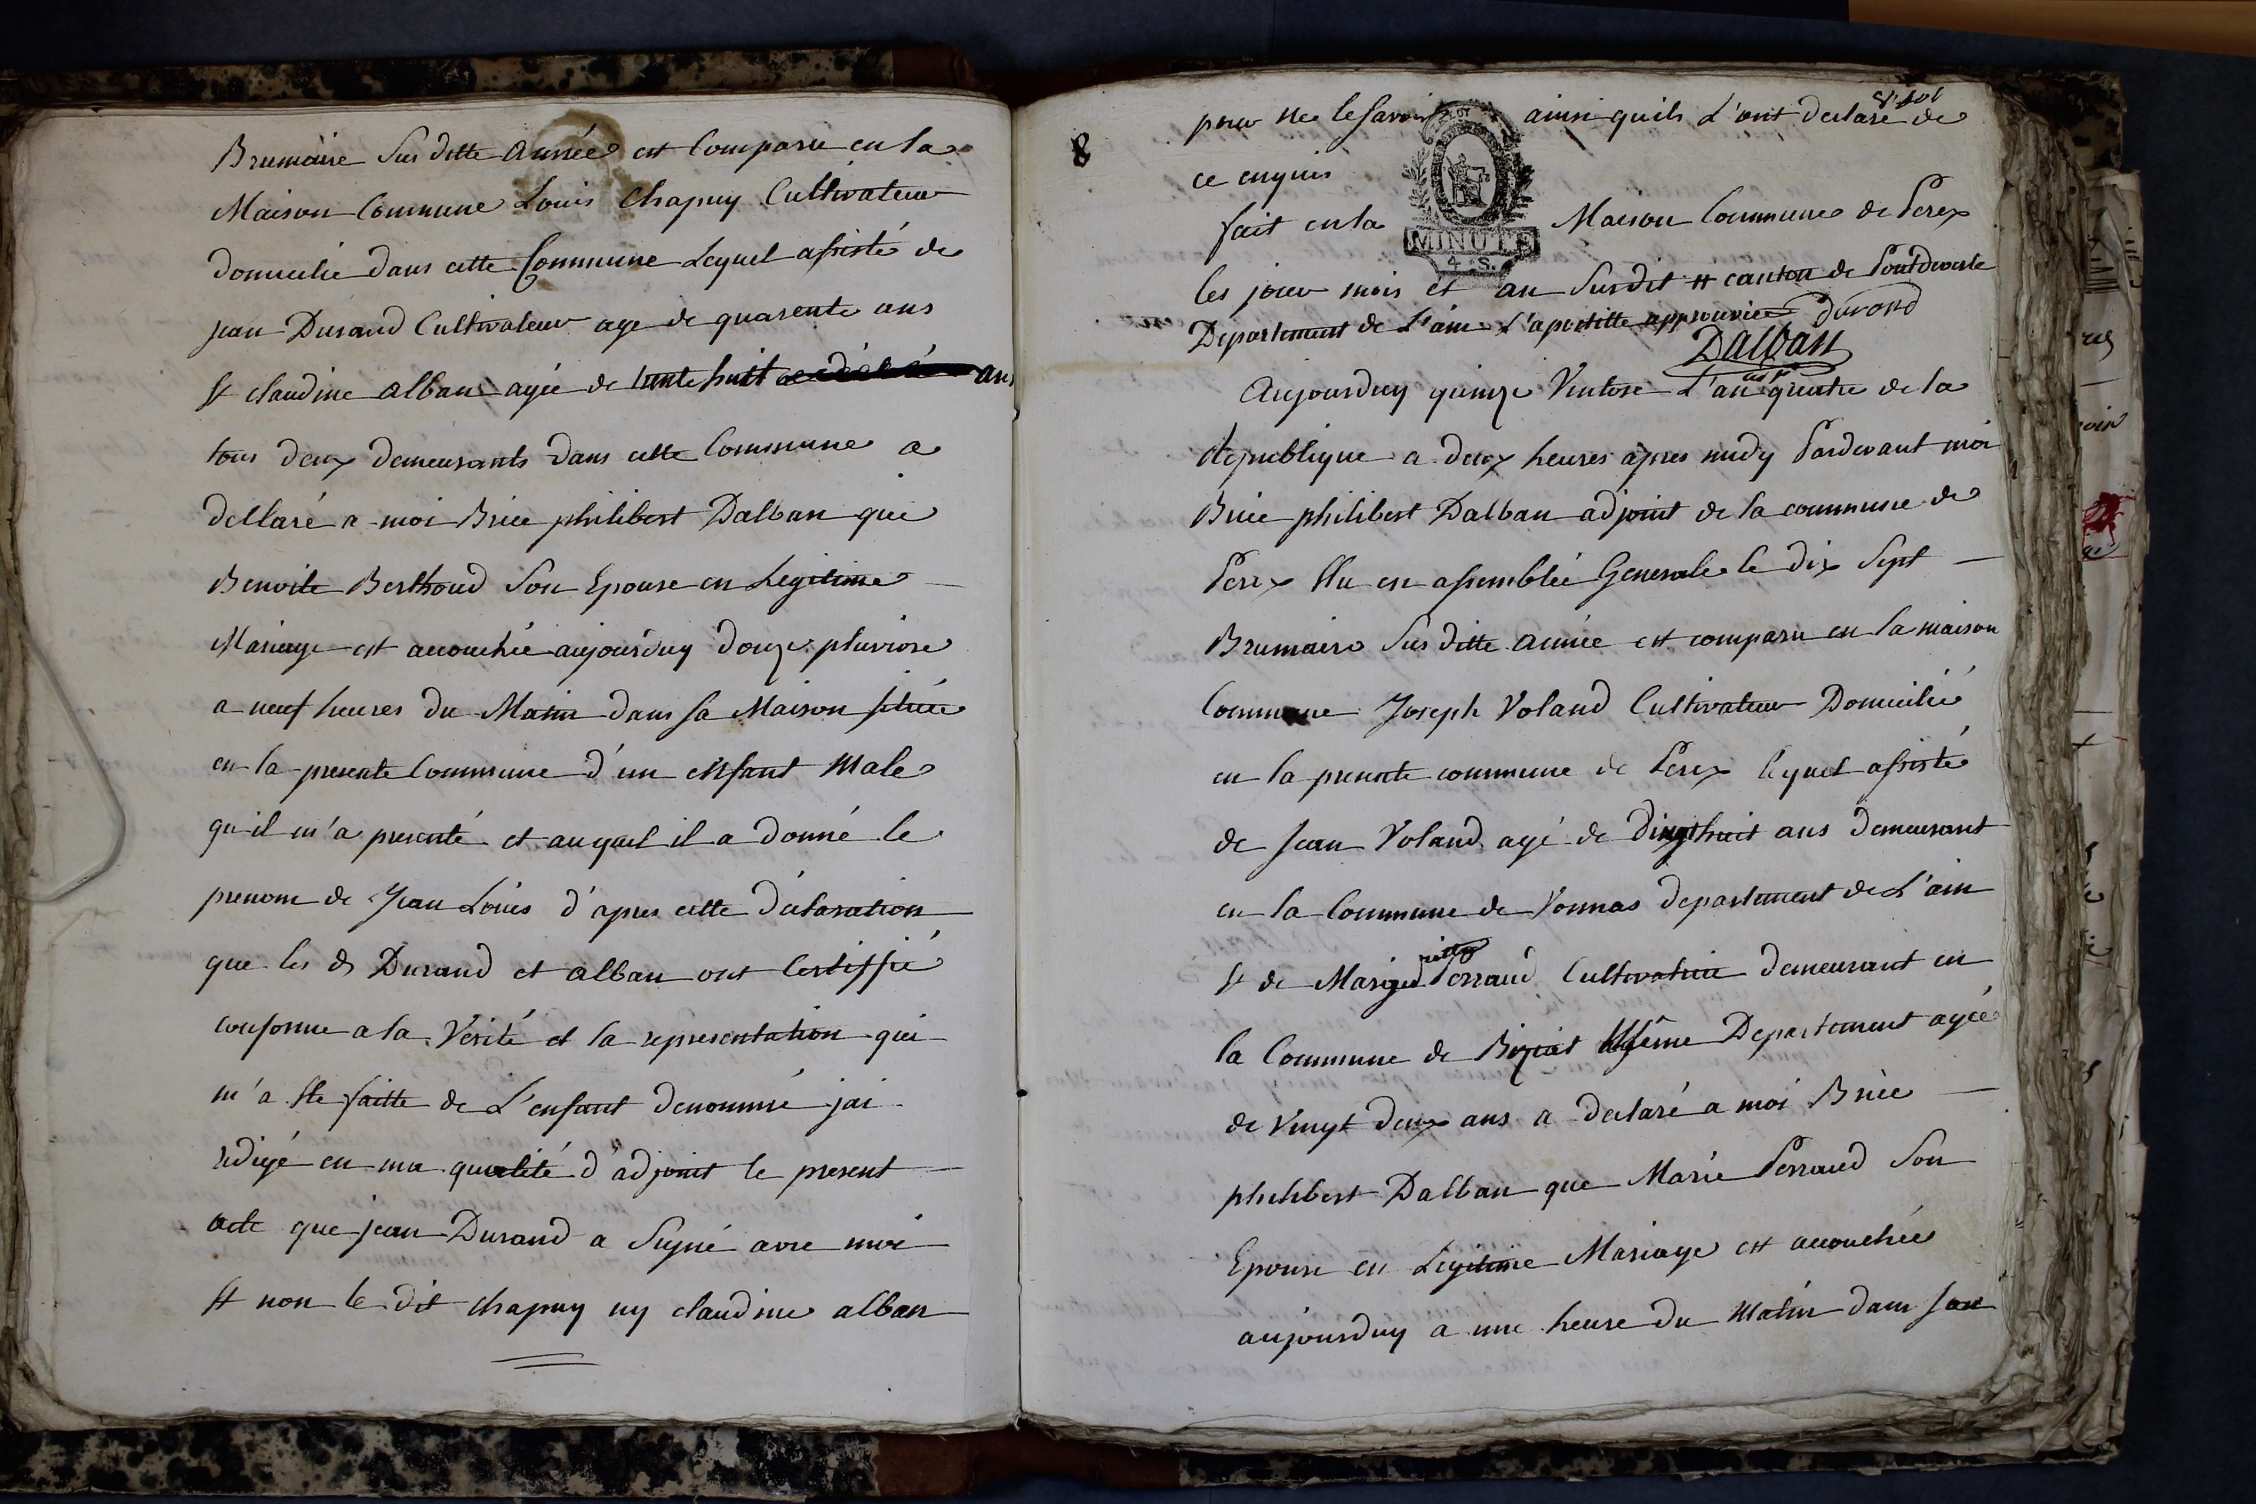 Brumaire Sus ditte année est Comparu en la
Maison Commune Louis Chapuy Cultivateur
domicilié dans cette Commune Lequel assisté de
jean Durand Cultivateur age de quarente ans
Et claudine alban agée de trente huit ans
tous deux demeurants dans cette Commune a
dellaré a moi Brice philibert Dalban que
Benoite Berthoud Son Epouse en Legitime
Mariage est accouchée aujourduy douze pluviose
a neuf heures du Matin dans sa Maison située
en la presente Commune d'un enfant Male
qu-il m'a presenté et auquel il a donné le
prenom de Jean Louis d'apres cette déclaration
que les ds Durand et alban ont Certiffié
conforme a la Verité et la representation qui
m'a Ete faitte de L'enfant denommé jai
redigé en ma qualité d'adjoint le present
acte que jean Durand a Signé avec moi
Et non le dit chapuy ny claudine alban
8
pour ne le savoir ainsi quils L'ont declaré de
ce enquis
fait en la Maison Commune de Perex
MINUTE
4. S.
les jour mois et an Susdit # canton de Pontdevesle
Departement de L'ain L'apostille approuvée durand
Dalban
Aujourduy quinze Ventose L'an quatre de la
Republique a deux heures apres midy Pardevant moi
Brice philibert Dalban adjoint de la commune de
Perex Elu en assemblée Generale le dix Sept
Brumaire Sus ditte année est comparu en la maison
Commune Joseph Voland Cultivateur Domicilié
en la presente commune de Perex lequel assisté
de Jean Voland agé de dixhuit ans demeurant
en la Commune de Vonnas departement de L'ain
Et de Marie Perraud Cultivatrice demeurant en
la Commune de Biziat Même Departement agée
de Vingt deux ans a declaré a moi Brice
philibert Dalban que Marie Perraud Son
Epouse en Legitime Mariage est accouchée
aujourduy a une heure du Matin dans son